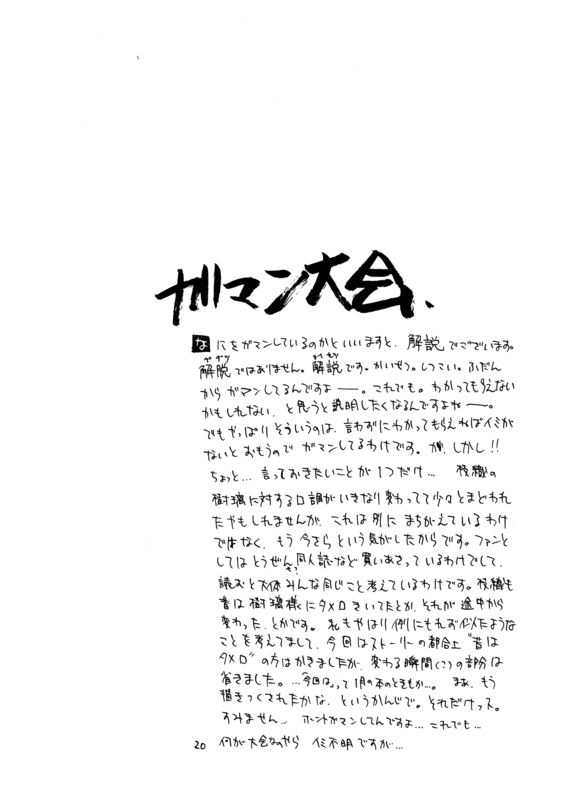 ガマン大会、
なにをガマンしているのかといいますと、解説でございます。
解脱ではありません。解説です。かいせつ。しつこい。ふだん
からガマンしてるんですよ――。これでも。わかってもらえない
かもしれない、と思うと説明したくなるんですよね――。
でもやっぱりそういうのは、言わずにわかってもらえればイミが
ないとおもうのでガマンしてるわけです。が、しかし!!
ちょっと… 言っておきたいことが1つだけ… 枝織の
樹璃に対する口調がいきなり変わってて少々とまどわれ
たやもしれませんが、これは別にまちがえているわけ
ではなく、もう今さらという気がしたからです。ファンと
してはとうぜん同人誌など買いあさっているわけでして、
読むと大体みんな同じこと考えているわけです。枝織も
昔は樹璃様にタメ口きいてたとか、それが途中から
変わった、とかです。私もやはり例にもれず似たような
ことを考えてまして、今回はストーリーの都合上"昔は
タメ口"の方はかきましたが、変わる瞬間(?)の部分は
省きました。…「今回は」って1月の本のときもか…。まあ、もう
描きつくされたかな、というかんじで。それだけっス。
すみません… ホントガマンしてんですよ… これでも…
何が大会なのやら イミ不明ですが…
20